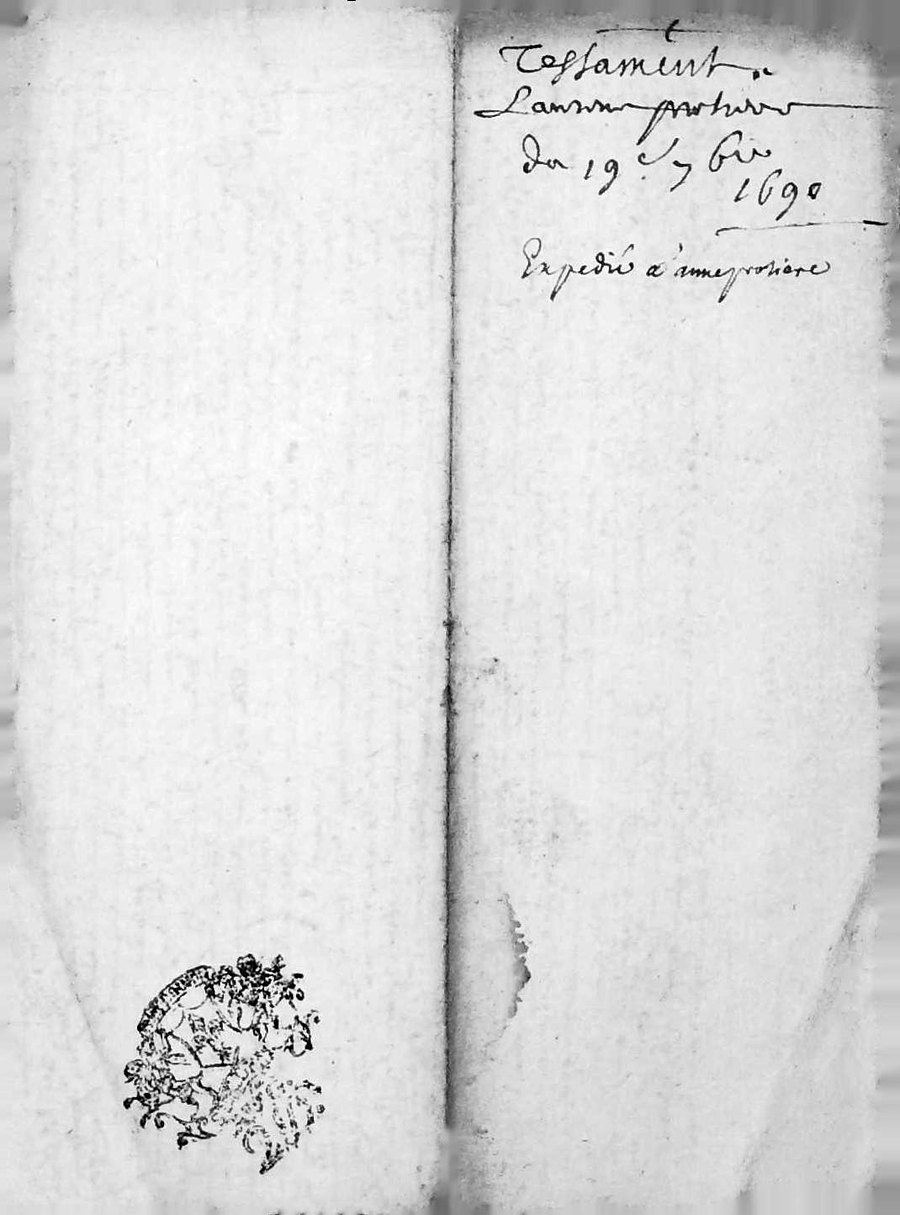 Testament
Laurent protiere
du 19e 7bre
1690
Expedié a anne protiere